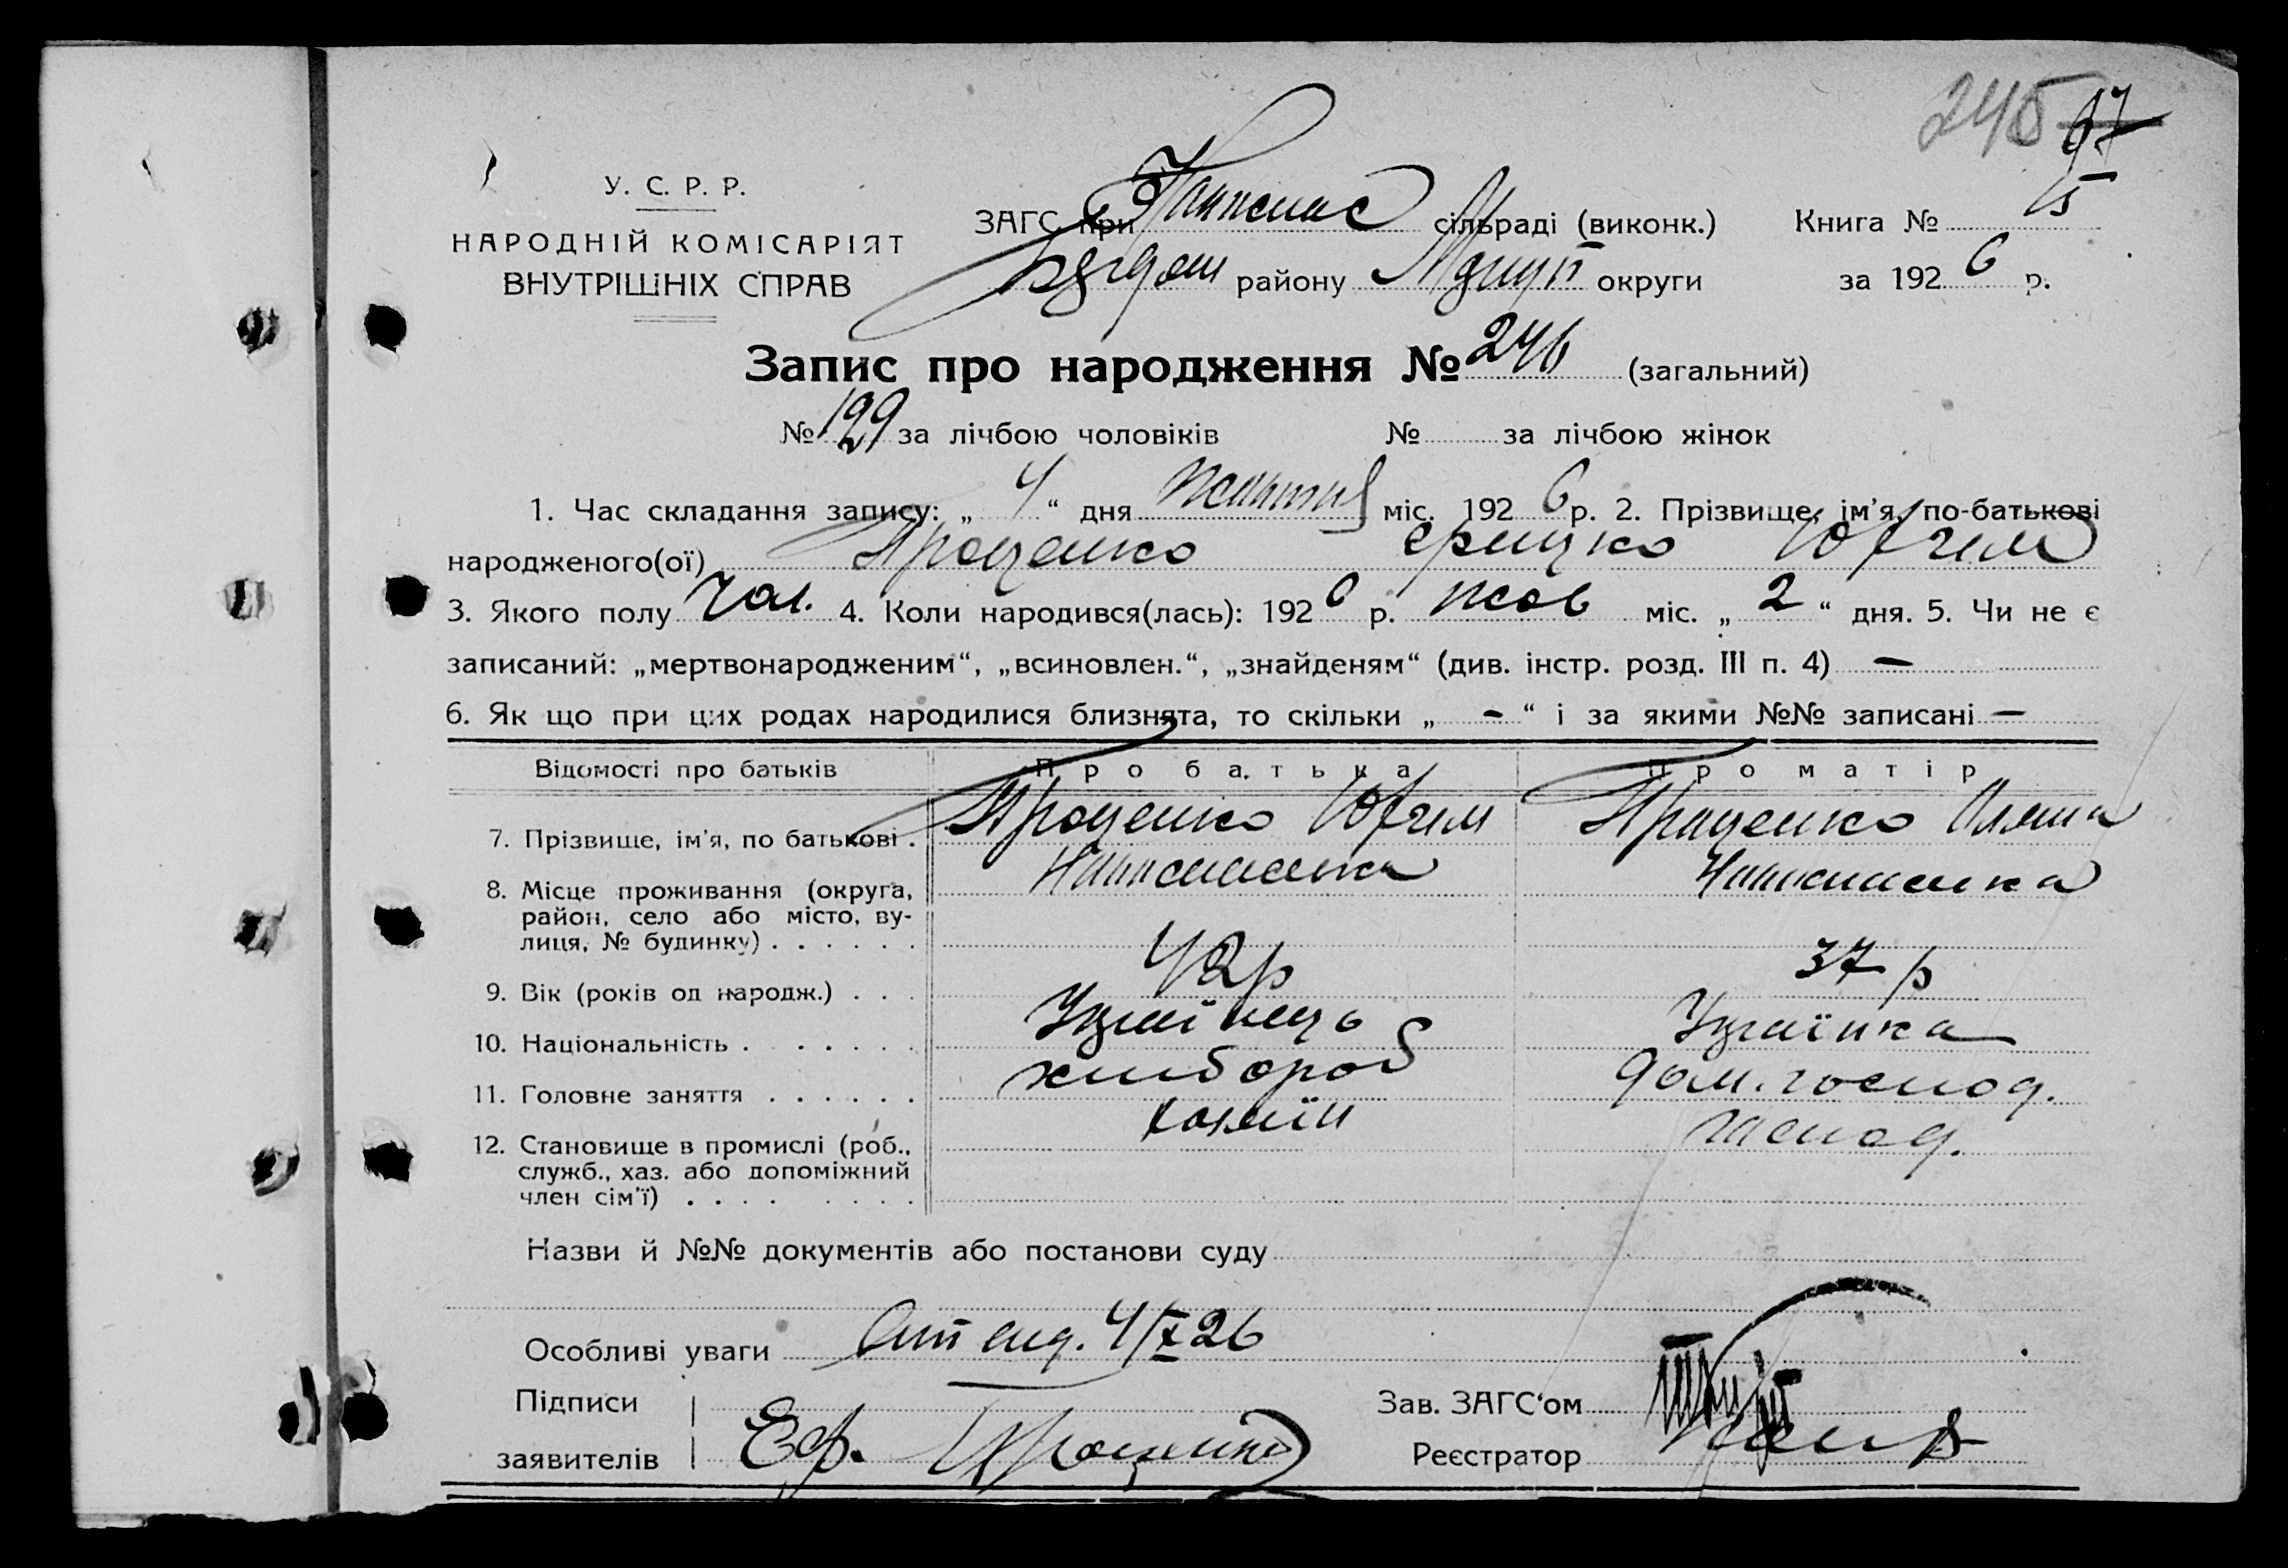 245 67
У. С. Р. Р.
НАРОДНІЙ КОМІСАРІЯТ
ВНУТРІШНІХ СПРАВ
ЗАГС при сільраді (виконк.) Книга № 15
району округи за 1926 р.
Запис про народження № 246 (загальний)
№ 129 за лічбою чоловіків № за лічбою жінок
1. Час складання запису: „ 4 “ дня Жовтня міс. 1926 р. 2. Прізвище, ім’я, по-батькові
народженого(ої) Проценко Грицько Юхим
3. Якого полу Чол. 4. Коли народився(лась): 1926 р. жов міс. „ 2 “ дня. 5. Чи не є
записаний: „мертвонародженим“, „всиновлен.“, „знайденям“ (див. інстр. розд. III п. 4) —
6. Як що при цих родах народилися близнята, то скільки „ - “ і за якими №№ записані —
Відомості про батьків Про батька Про матір
7. Прізвище, ім’я, по батькові . Проценко Юхим Проценко
8. Місце проживання (округа,
район, село або місто, ву-
лиця, № будинку) . . . . . .
9. Вік (років од народж.) . . . 42р 37 р
10. Національність . . . . . . Україїнець Українка
11. Головне заняття . . . . . . хлібороб дом. господ.
12. Становище в промислі (роб.,
служб., хаз. або допоміжний
член сім’ї) . . . . . . . . хазяїн
Назви й №№ документів або постанови суду
Особливі уваги 4/X 26
Підписи
заявителів Еф. Проценко
Зав. ЗАГС‘ом
Реєстратор